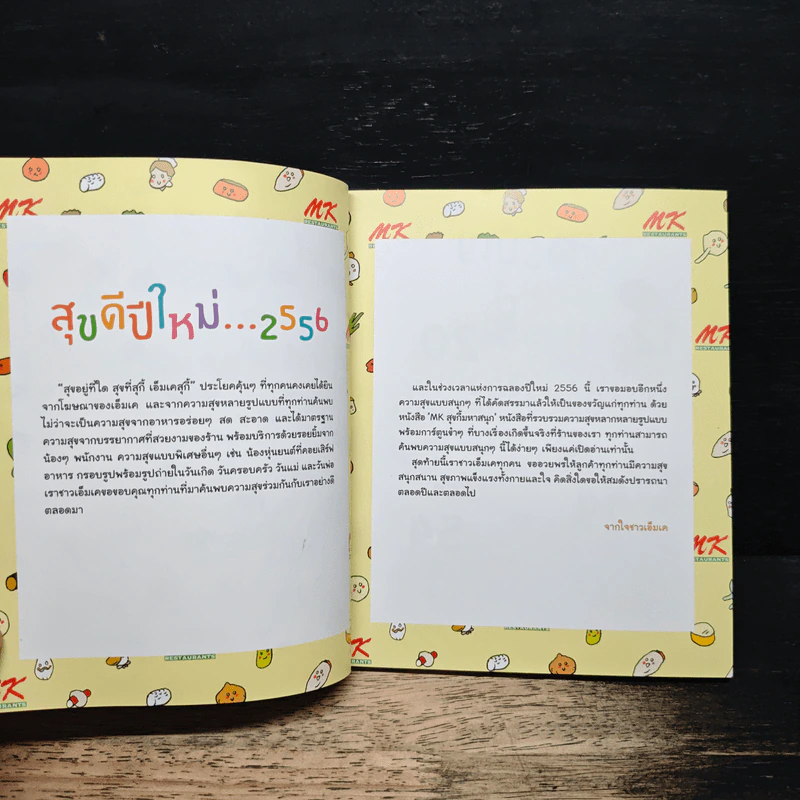 MK
MK
RESTAURANTS
MK
RESTAURANTS
MK
RESTAURANTS
สุขดีปีใหม่...2556
"สุขอยู่ที่ใด สุขที่สุกี้ เอ็มเคสุกี้" ประโยคคุ้นๆ ที่ทุกคนคงเคยได้ยิน
จากโฆษณาของเอ็มเค และจากความสุขหลายรูปแบบที่ทุกท่านค้นพบ
ไม่ว่าจะเป็นความสุขจากอาหารอร่อยๆ สด สะอาด และได้มาตรฐาน
ความสุขจากบรรยากาศที่สวยงามของร้าน พร้อมบริการด้วยรอยยิ้มจาก
น้องๆ พนักงาน ความสุขแบบพิเศษอื่นๆ เช่น น้องหุ่นยนต์ที่คอยเสิร์ฟ
อาหาร กรอบรูปพร้อมรูปถ่ายในวันเกิด วันครอบครัว วันแม่ และวันพ่อ
เราชาวเอ็มเคขอขอบคุณทุกท่านที่มาค้นพบความสุขร่วมกันกับเราอย่างดี
ตลอดมา
และในช่วงเวลาแห่งการฉลองปีใหม่ 2556 นี้ เราขอมอบอีกหนึ่ง
ความสุขแบบสนุกๆ ที่ได้คัดสรรมาแล้วให้เป็นของขวัญแก่ทุกท่าน ด้วย
หนังสือ 'MK สุขกี้มหาสนุก' หนังสือที่รวบรวมความสุขหลากหลายรูปแบบ
พร้อมการ์ตูนขำๆ ที่บางเรื่องเกิดขึ้นจริงที่ร้านของเรา ทุกท่านสามารถ
ค้นพบความสุขแบบสนุกๆ นี้ได้ง่ายๆ เพียงแค่เปิดอ่านเท่านั้น
สุดท้ายนี้เราชาวเอ็มเคทุกคน ขออวยพรให้ลูกค้าทุกท่านมีความสุข
สนุกสนาน สุขภาพแข็งแรงทั้งกายและใจ คิดสิ่งใดขอให้สมดังปรารถนา
ตลอดปีและตลอดไป
จากใจชาวเอ็มเค
MK
RESTAURANTS
MK
RESTAURANTS
MK
RESTAURANTS
MK
RESTAURANTS